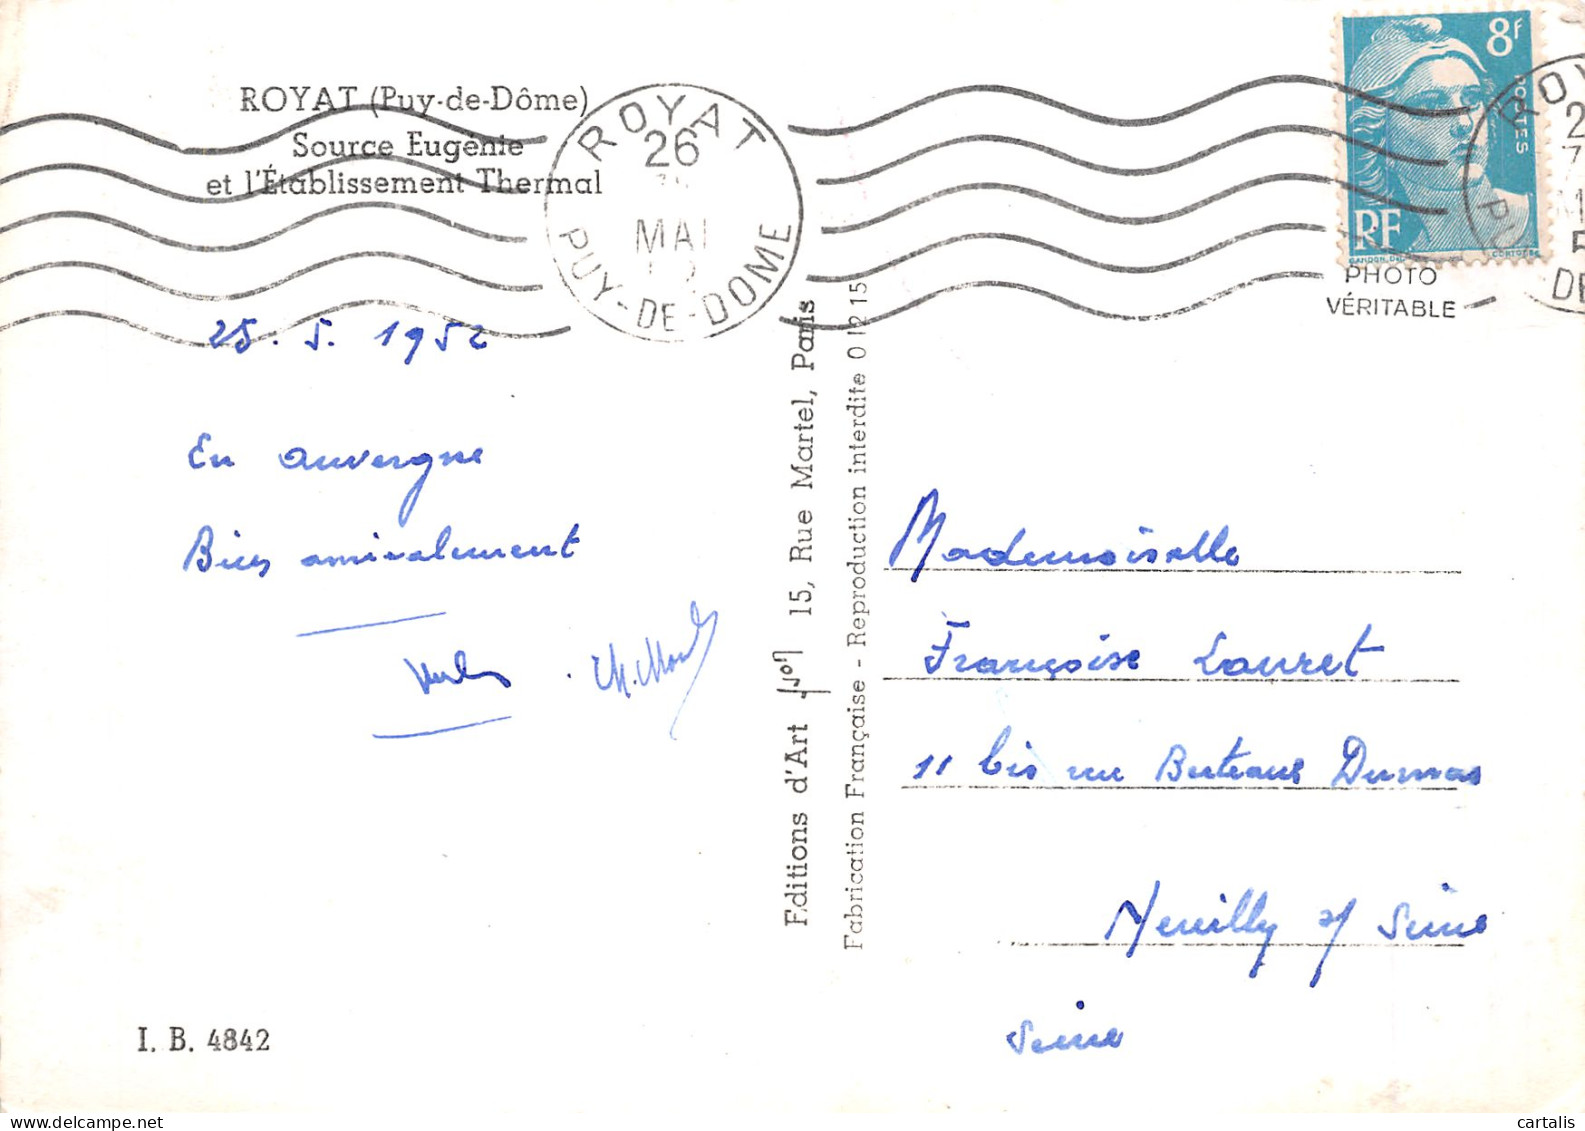 ROYAT (Puy-de-Dôme)
Source Eugénie
et l'Établissement Thermal
ROYAT
26
MAI
PUY-DE-DOME
8F
POSTES
RF
PHOTO
VÉRITABLE
25.5.1952
En auvergne
Bien amicalement
Editions d'Art Yvon 15, Rue Martel, Paris
Fabrication Française - Reproduction interdite 0 12 15
Mademoiselle
Françoise Lauret
11 bis rue Berteaux Dumas
Neuilly s/ Seine
Seine
I. B. 4842
cartalis